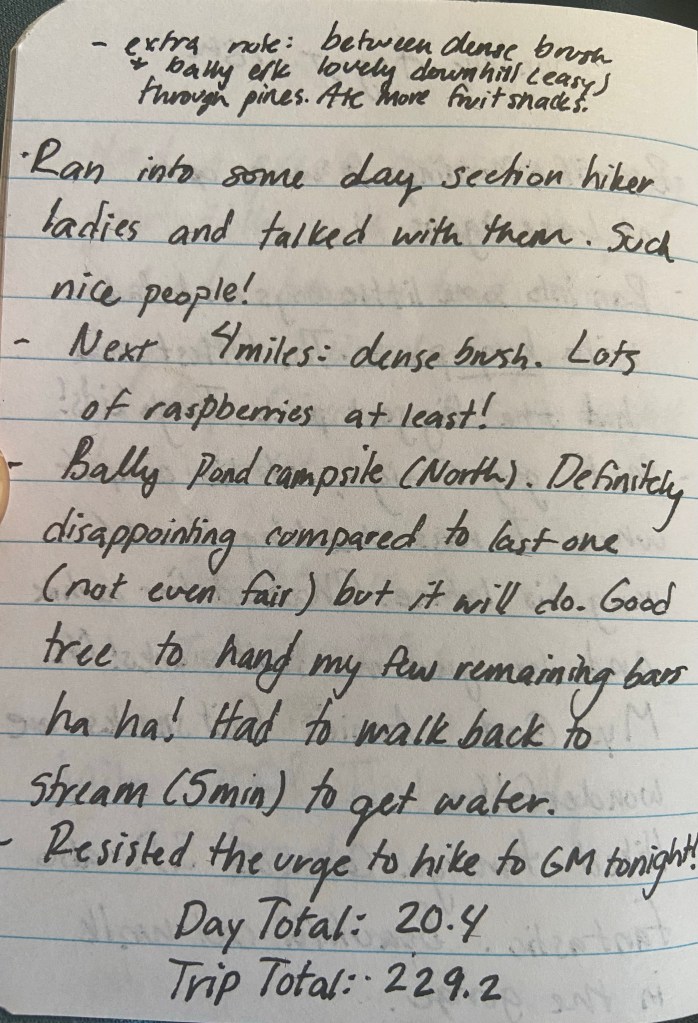 - extra note: between dense brush
+ bally elk lovely downhill (easy)
through pines. Ate more fruit snacks.
· Ran into some day section hiker
ladies and talked with them. Such
nice people!
- Next 4 miles: dense brush. Lots
of raspberries at least!
- Bally Pond campsite (North). Definitely
disappointing compared to last one
(not even fair) but it will do. Good
tree to hand my few remaining bars
ha ha! Had to walk back to
stream (5min) to get water.
- Resisted the urge to hike to GM tonight!
Day Total: 20.4
Trip Total: 229.2